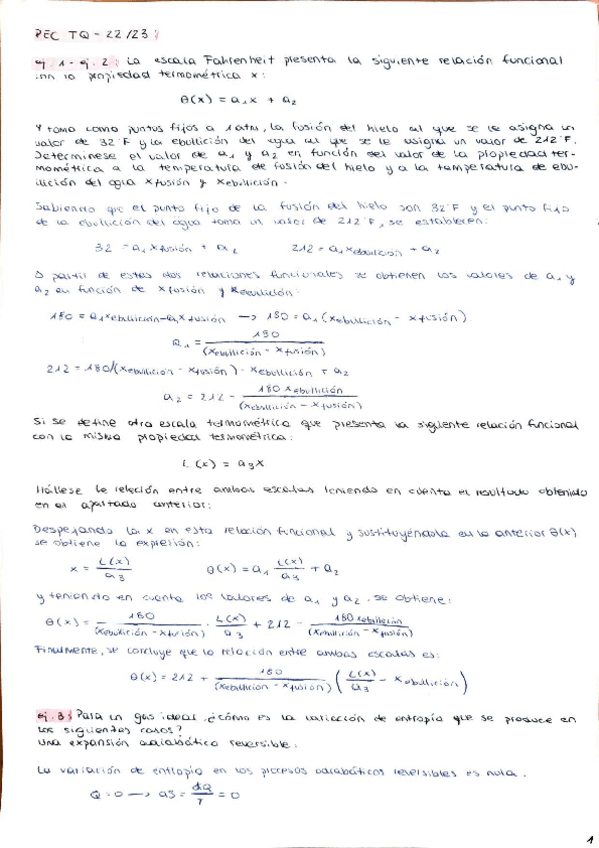 PEC TQ - 22/23:
ej. 1 - ej. 2: La escala Fahrenheit presenta la siguiente relación funcional
con la propiedad termométrica x:
θ(x) = a₁x + a₂
Y toma como puntos fijos a 1 atm, la fusión del hielo al que se le asigna un
valor de 32°F y la ebullición del agua al que se le asigna un valor de 212°F.
Determínese el valor de a₁ y a₂ en función del valor de la propiedad ter-
mométrica a la temperatura de fusión del hielo y a la temperatura de ebu-
llición del agua xfusión y xebullición.
Sabiendo que el punto fijo de la fusión del hielo son 32°F y el punto fijo
de la ebullición del agua toma un valor de 212°F, se establecen:
32 = a₁xfusión + a₂ 212 = a₁xebullición + a₂
A partir de estas dos relaciones funcionales se obtienen los valores de a₁ y
a₂ en función de xfusión y xebullición:
180 = a₁xebullición - a₁xfusión → 180 = a₁(xebullición - xfusión)
a₁ = 180 / (xebullición - xfusión)
212 = 180/(xebullición - xfusión) · xebullición + a₂
a₂ = 212 - 180 xebullición / (xebullición - xfusión)
Si se define otra escala termométrica que presenta la siguiente relación funcional
con la misma propiedad termométrica:
L(x) = a₃x
Hállese la relación entre ambas escalas teniendo en cuenta el resultado obtenido
en el apartado anterior:
Despejando la x en esta relación funcional y sustituyéndola en la anterior θ(x)
se obtiene la expresión:
x = L(x)/a₃ θ(x) = a₁ L(x)/a₃ + a₂
y teniendo en cuenta los valores de a₁ y a₂, se obtiene:
θ(x) = 180 / (xebullición - xfusión) · L(x)/a₃ + 212 - 180 xebullición / (xebullición - xfusión)
Finalmente, se concluye que la relación entre ambas escalas es:
θ(x) = 212 + 180 / (xebullición - xfusión) (L(x)/a₃ - xebullición)
ej. 3: Para un gas ideal, ¿cómo es la variación de entropía que se produce en
los siguientes casos?
Una expansión adiabática reversible:
La variación de entropía en los procesos adiabáticos reversibles es nula.
Q = 0 → dS = dQ/T = 0
1